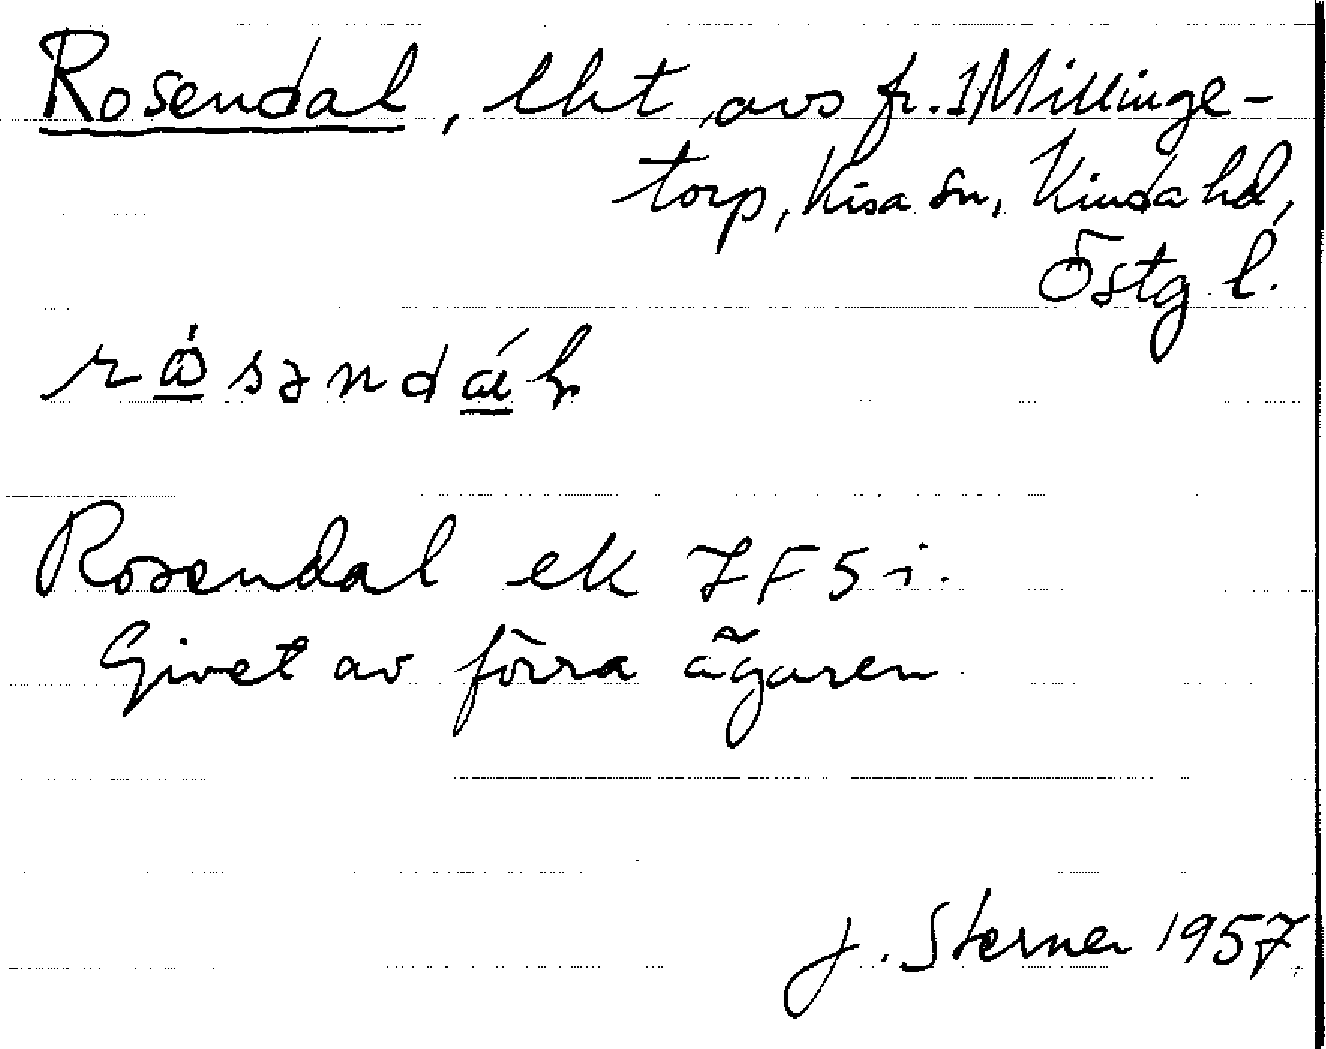 Rosendal, lht avs fr. 1 Millinge-
torp, Kisa sn, Kinda hd,
Östg l.
Rosendal ek JFS i.
Givet av förra ägaren
J. Sterner 1957.